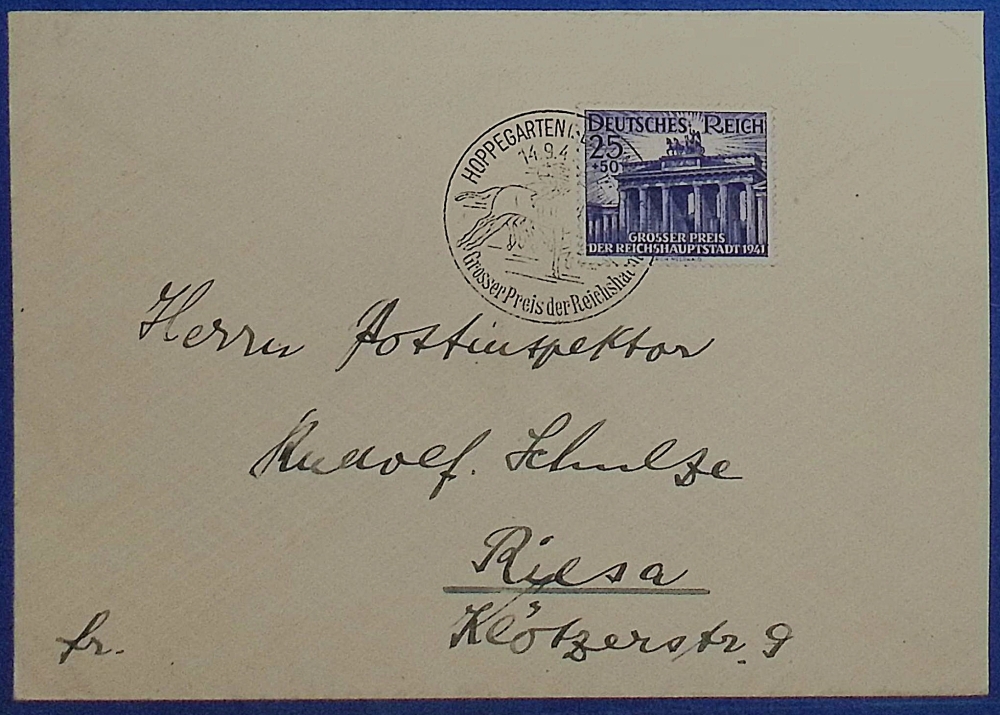 HOPPEGARTEN
14.9.4
Grosser Preis der Reichsha
DEUTSCHES REICH
25
+50
GROSSER PREIS
DER REICHSHAUPTSTADT 1941
Herrn Postinspektor
Rudolf. Schulze
Riesa
Klötzerstr. 9
fr.